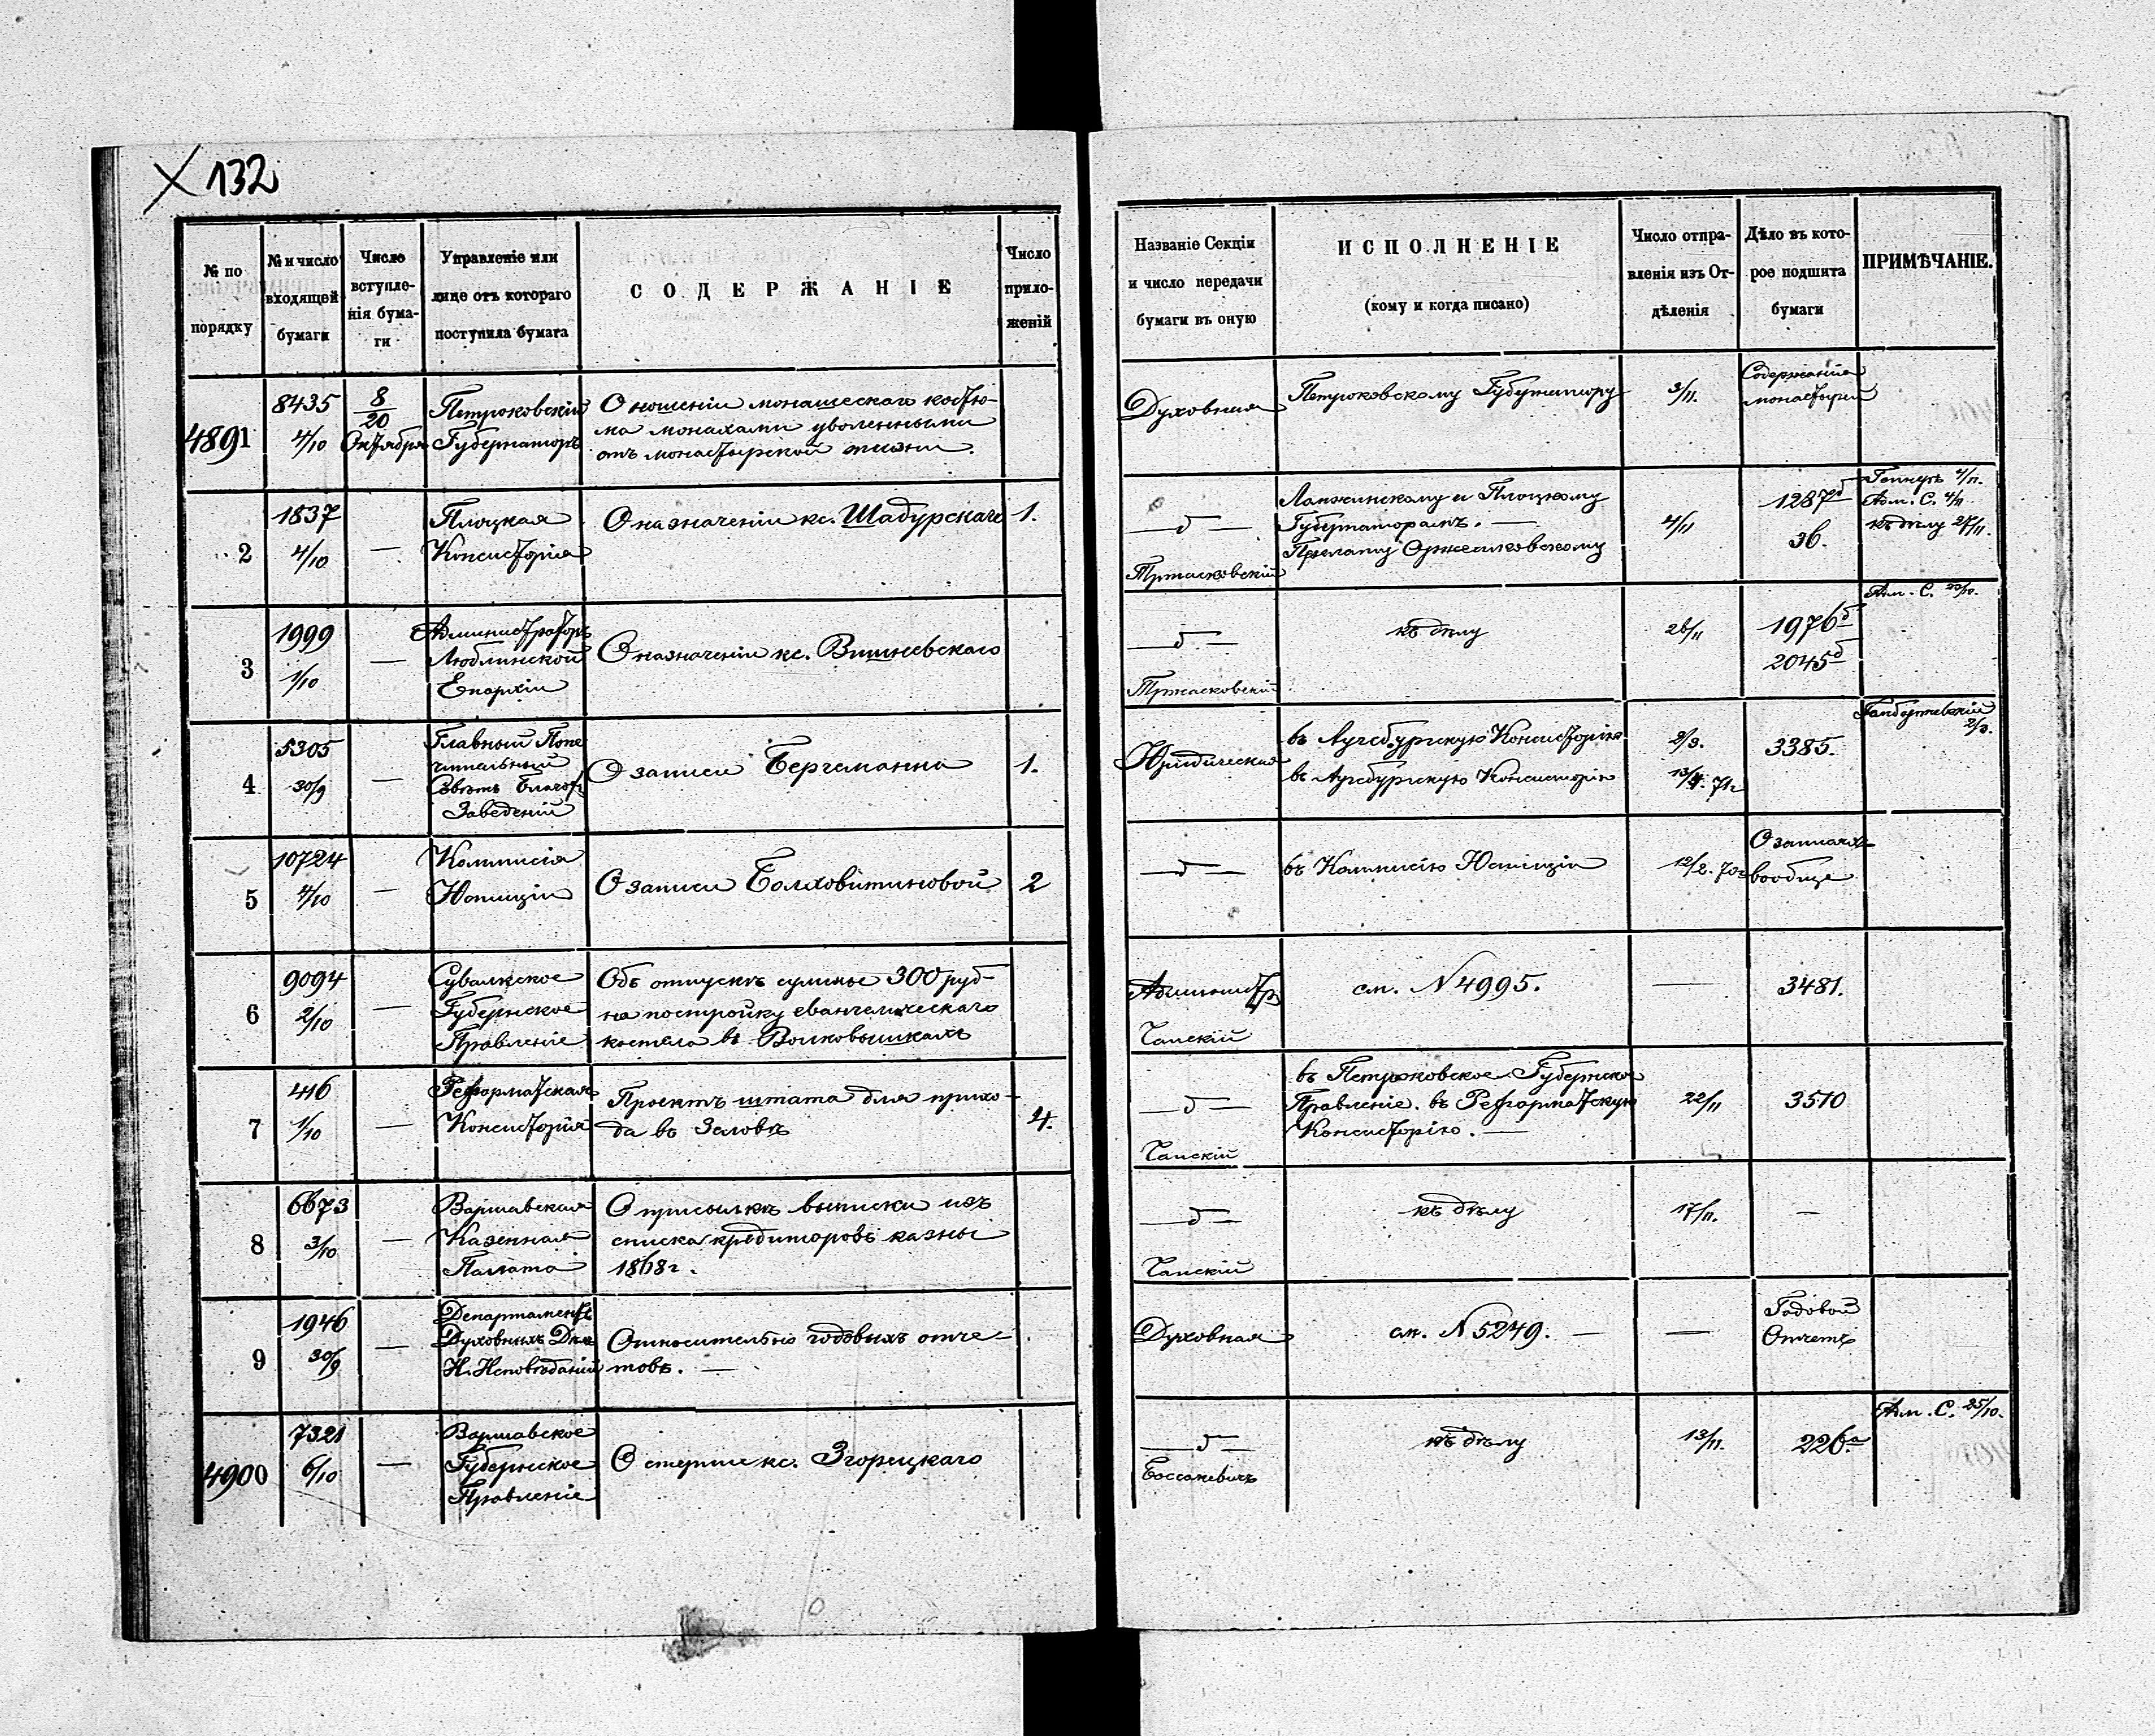 X 132
№ по порядку
№ и число входящей бумаги
Число вступле-нія бума-ги
Управленіе или лице отъ котораго поступила бумага
СОДЕРЖАНІЕ
Число прило-женій
Названіе Секціи и число передачи бумаги въ оную
ИСПОЛНЕНІЕ
(кому и когда писано)
Число отпра-вленія изъ От-дѣленія
Дѣло въ кото-рое подшита бумаги
ПРИМѢЧАНІЕ.
4891
8435
4/10
8/20
Октября
Петроковскій
Губернаторъ
О ношеніи монашескаго костю-
ма монахами уволенными
отъ монастырской жизни.
Духовная
Петроковскому Губернатору
3/11.
Содержаніе
монастырей
2
1837
4/10
—
Плоцкая
Консисторія
О назначеніи кс. Шадурскаго
1.
— д —
Тржасковскій
Ломжинскому и Плоцкому
Губернаторамъ. —
Прелату Оржешковскому
4/11
1287б
36.
4/11.
Адм. С. 4/11
къ дѣлу 27/11.
3
1999
1/10
—
Администраторъ
Люблинской
Епархіи
О назначеніи кс. Вишневскаго
— д —
Тржасковскій
къ дѣлу
26/11
1976б
2045б
Адм. С. 20/10.
4
5305
30/9
—
Главный Попе
чительный
Совѣтъ Благот.
Заведеній
О записи Бергеманна
1.
Юридическая
въ Аугсбургскую Консисторію
въ Аугсбургскую Консисторію
2/3.
13/4. 71г
3385.
2/3.
5
10724
4/10
—
Коммисія
Юстиціи
О записи Болховитиновой
2
— д —
въ Коммисію Юстиціи
12/2. 70г
О записяхъ
вообще
6
9094
2/10
—
Сувалкское
Губернское
Правленіе
Объ отпускѣ суммы 300 руб-
на постройку евангелическаго
костела въ Волковышкахъ
Администр
Чапскій
см. N 4995.
—
3481.
7
416
1/10
—
Реформатская
Консисторія
Проектъ штата для прихо-
да въ Зеловѣ
4.
— д —
Чапскій
въ Петроковское Губернское
Правленіе. въ Реформатскую
Консисторію. —
22/11
3510
8
6673
3/10
—
Варшавская
Казенная
Палата
О присылкѣ выписки изъ
списка кредиторовъ казны
1868г.
— д —
Чапскій
къ дѣлу
17/11.
—
9
1946
30/9
—
Департаментъ
Духовныхъ Дѣлъ
И. Исповѣданій
Относительно годовыхъ отче-
товъ. —
Духовная
см. N 5249. —
—
Годовой
Отчетъ
4900
7321
6/10
—
Варшавское
Губернское
Правленіе
О смерти кс. Згорецкаго
— д —
Боссакевичъ
къ дѣлу
13/11.
226а
Адм. С. 25/10.